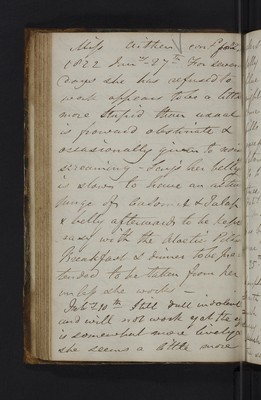 Miss Aitken contd
1822 Jany 27th For seven
days she has refused to
work appears to be a little
more stupid than usual
is froward obstinate &
occasionally given to
screaming - her belly
is slow to have an active
purge of Calomel & Jalap
& belly afterwards to be kept
easy with the Aloetic Pills
Breakfast & dinner to be
to be taken from her
unless she works -
Feb 10th Still dull indolent
and will not work yet she
is somewhat more
she seems a little more